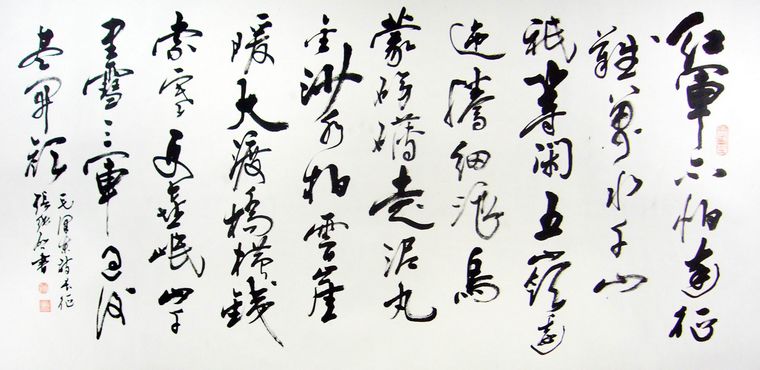 紅軍不怕遠征
難萬水千山
祇等閑五嶺逶
迤騰細浪烏
蒙磅礴走泥丸
金沙水拍雲崖
暖大渡橋橫鐵
索寒更喜岷山千
里雪三軍過後
盡開顏
毛澤東詩長征
張書